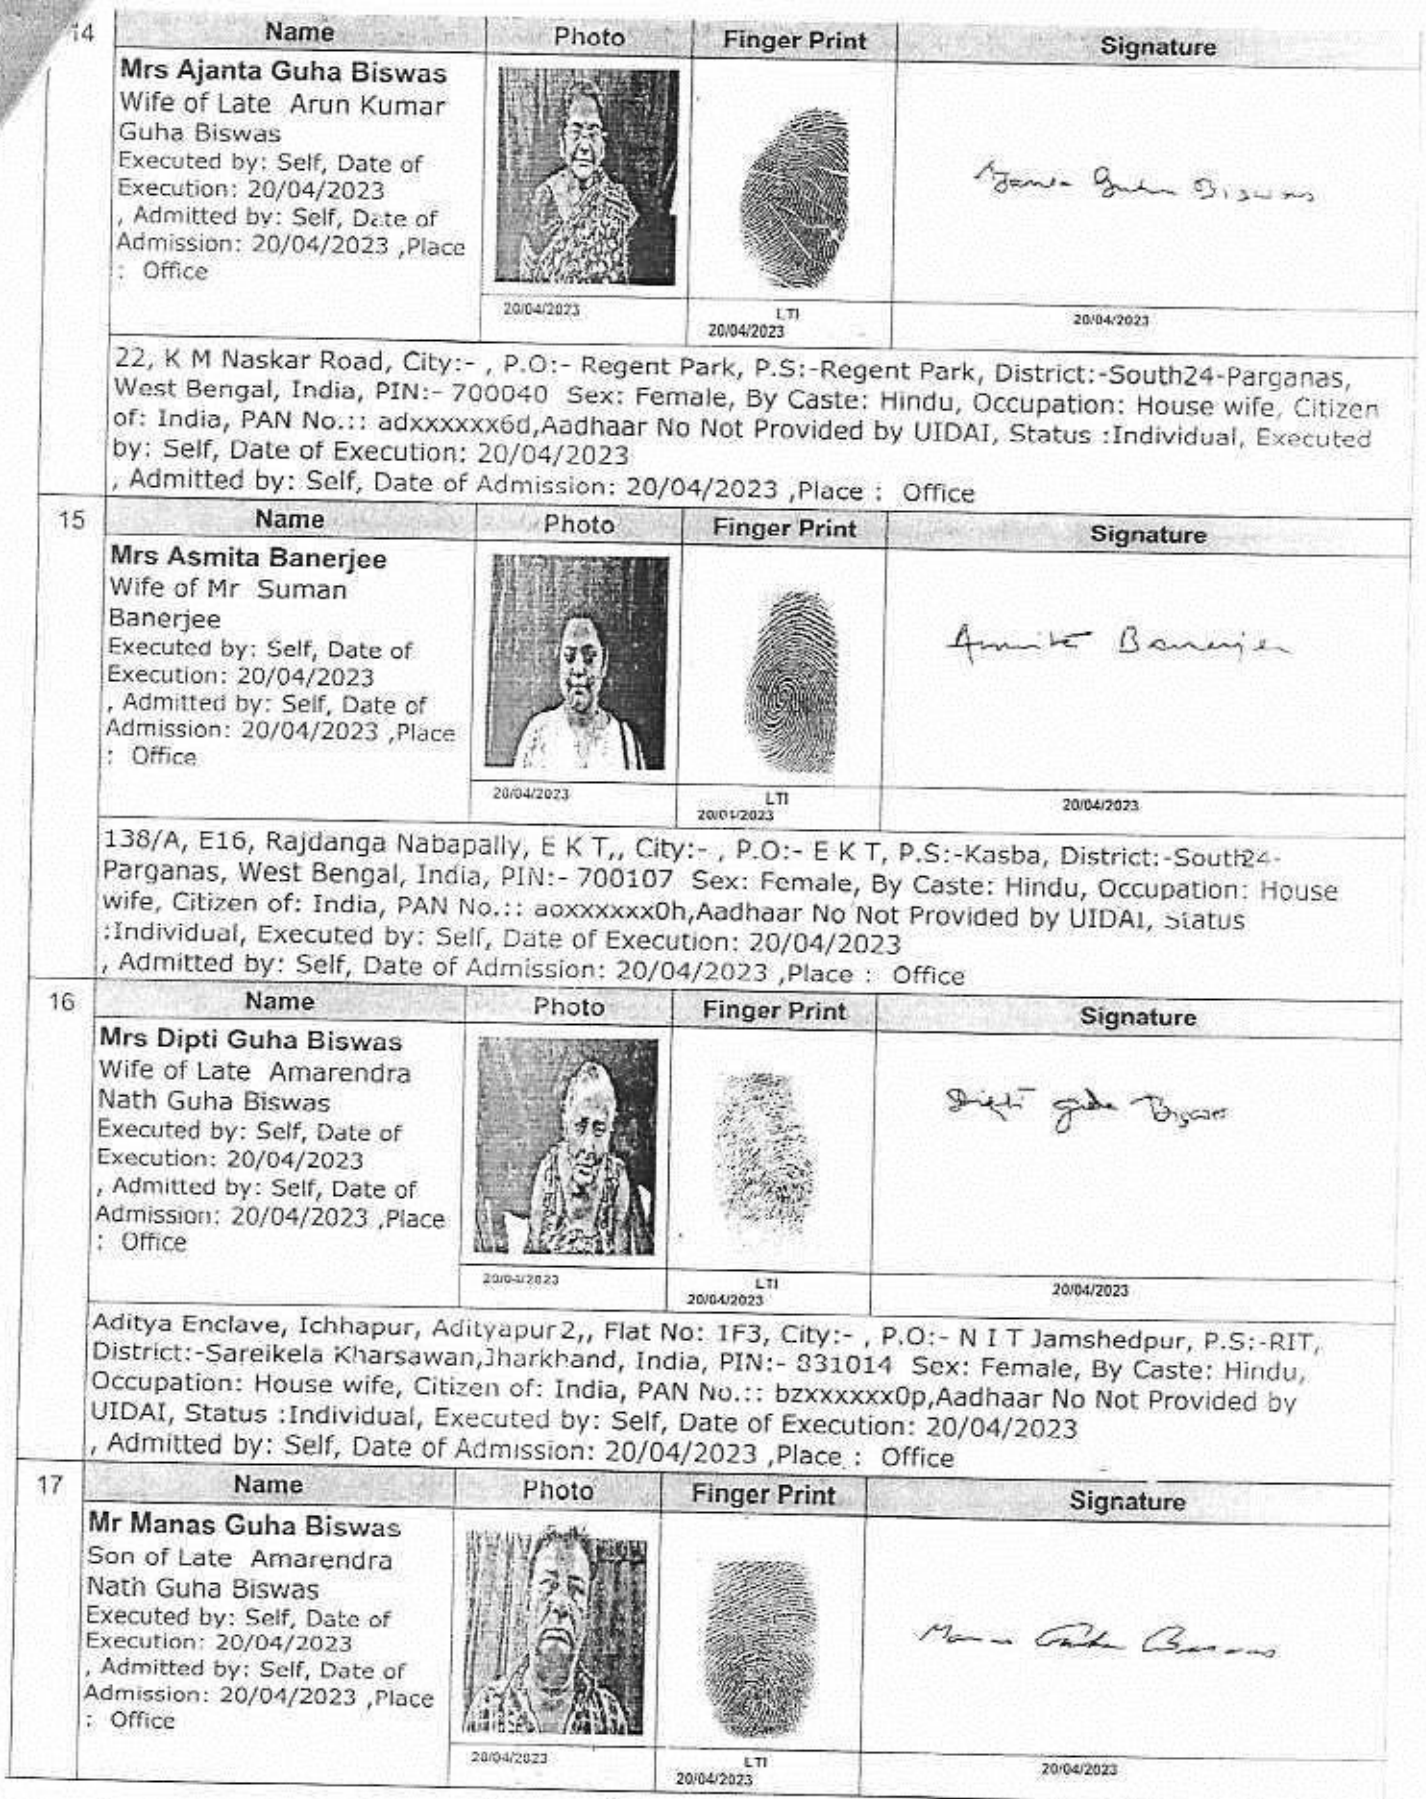 14 Name Photo Finger Print Signature
Mrs Ajanta Guha Biswas
Wife of Late Arun Kumar
Guha Biswas
Executed by: Self, Date of
Execution: 20/04/2023
, Admitted by: Self, Date of
Admission: 20/04/2023 ,Place
: Office
Guha Biswas
20/04/2023 LTI 20/04/2023
20/04/2023
22, K M Naskar Road, City:- , P.O:- Regent Park, P.S:-Regent Park, District:-South24-Parganas,
West Bengal, India, PIN:- 700040 Sex: Female, By Caste: Hindu, Occupation: House wife, Citizen
of: India, PAN No.:: adxxxxxx6d,Aadhaar No Not Provided by UIDAI, Status :Individual, Executed
by: Self, Date of Execution: 20/04/2023
, Admitted by: Self, Date of Admission: 20/04/2023 ,Place : Office
15 Name Photo Finger Print Signature
Mrs Asmita Banerjee
Wife of Mr Suman
Banerjee
Executed by: Self, Date of
Execution: 20/04/2023
, Admitted by: Self, Date of
Admission: 20/04/2023 ,Place
: Office
Banerjee
20/04/2023 LTI 20/04/2023
20/04/2023
138/A, E16, Rajdanga Nabapally, E K T,, City:- , P.O:- E K T, P.S:-Kasba, District:-South24-
Parganas, West Bengal, India, PIN:- 700107 Sex: Female, By Caste: Hindu, Occupation: House
wife, Citizen of: India, PAN No.:: aoxxxxxx0h,Aadhaar No Not Provided by UIDAI, Status
:Individual, Executed by: Self, Date of Execution: 20/04/2023
, Admitted by: Self, Date of Admission: 20/04/2023 ,Place : Office
16 Name Photo Finger Print Signature
Mrs Dipti Guha Biswas
Wife of Late Amarendra
Nath Guha Biswas
Executed by: Self, Date of
Execution: 20/04/2023
, Admitted by: Self, Date of
Admission: 20/04/2023 ,Place
: Office
Dipti Guha Biswas
20/04/2023 LTI 20/04/2023
20/04/2023
Aditya Enclave, Ichhapur, Adityapur2,, Flat No: 1F3, City:- , P.O:- N I T Jamshedpur, P.S:-RIT,
District:-Sareikela Kharsawan,Jharkhand, India, PIN:- 831014 Sex: Female, By Caste: Hindu,
Occupation: House wife, Citizen of: India, PAN No.:: bzxxxxxx0p,Aadhaar No Not Provided by
UIDAI, Status :Individual, Executed by: Self, Date of Execution: 20/04/2023
, Admitted by: Self, Date of Admission: 20/04/2023 ,Place : Office
17 Name Photo Finger Print Signature
Mr Manas Guha Biswas
Son of Late Amarendra
Nath Guha Biswas
Executed by: Self, Date of
Execution: 20/04/2023
, Admitted by: Self, Date of
Admission: 20/04/2023 ,Place
: Office
Manas Guha Biswas
20/04/2023 LTI 20/04/2023
20/04/2023